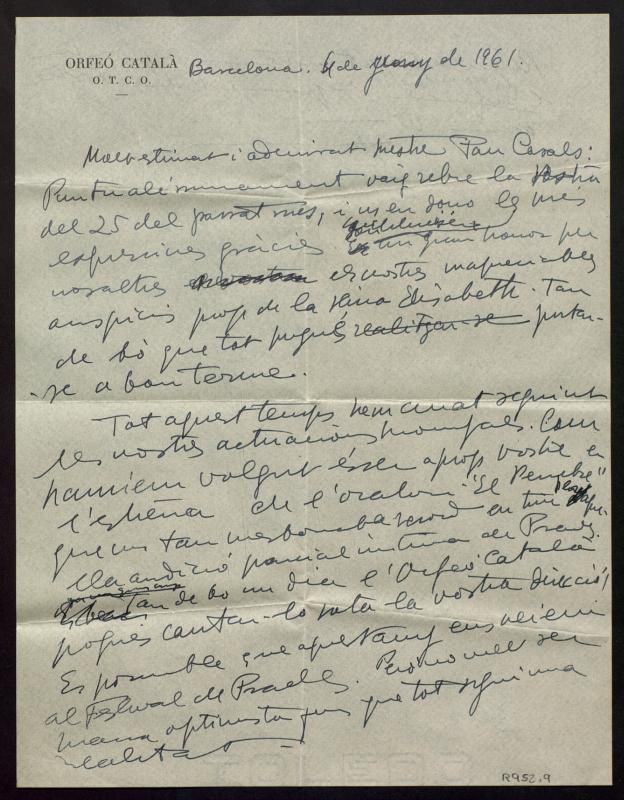 ORFEÓ CATALÀ
O. T. C. O.
Barcelona. 4 de juny de 1961.
Molt estimat i admirat Mestre Pau Casals:
Puntualíssimament vaig rebre la vostra
del 25 del passat mes, i us en dono les més
expressives gràcies un gran honor per
nosaltres els vostres inapreciables
auspicis prop de la Reina Elisabeth. Tan
de bò que tot pogués realitzar-se portar-
se a bon terme.
Tot aquest temps hem anat seguint
les vostres actuacions triomfals. Com
hauríem volgut ésser aprop vostre en
l'estrena de l'oratori "El Pessebre"
que ens tan bon record en
lla audició parcial íntima de Prades.
Tan de bo un dia l'Orfeó Català
pogués cantar-lo sota la vostra direcció!
Es possible que aquest any ens veiem
al Festival de Prades. Però no vull ser
massa optimista fins que tot sigui una
realitat
R952.9